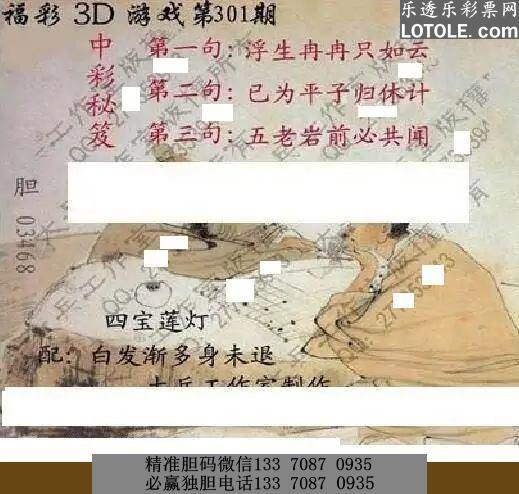 福彩 3D 游戏第301期
乐透乐彩票网
LOTOLE.COM
中彩秘笈
第一句：浮生冉冉只如云
第二句：已为平子归休计
第三句：五老岩前必共闻
胆 03468
四宝莲灯
配：白发渐多身未退
精准胆码微信133 7087 0935
必赢独胆电话133 7087 0935